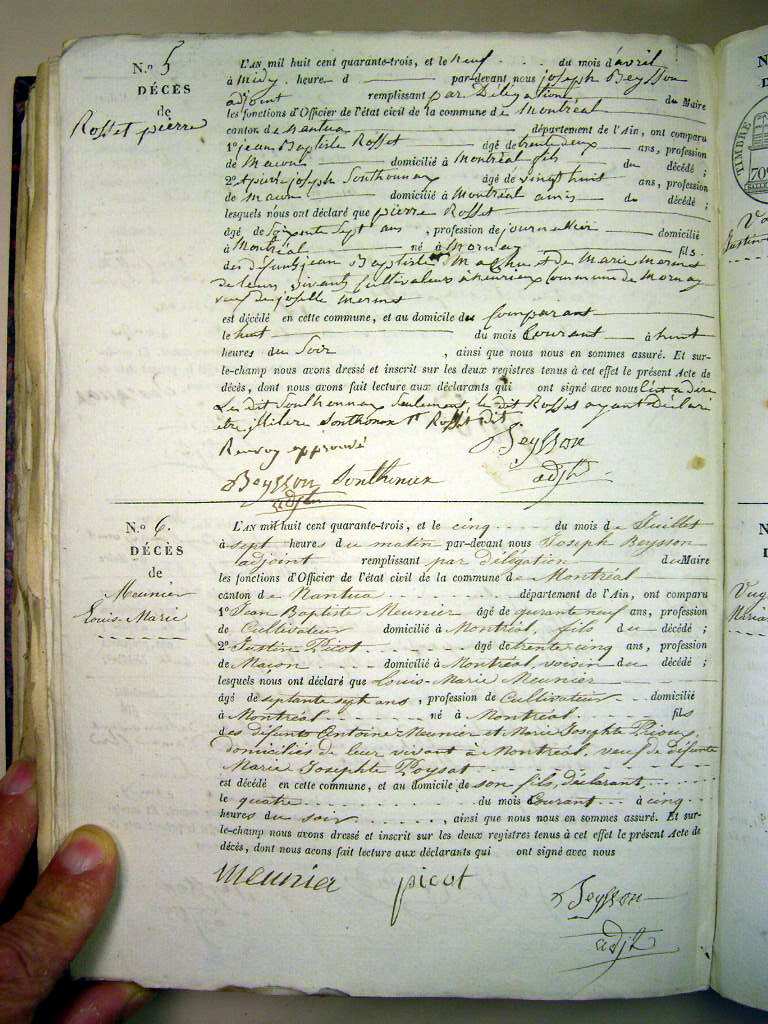 N.o 5
DÉCÈS
de
Rosset pierre
L'AN mil huit cent quarante-trois, et le neuf du mois d'avril
à midy heure d par-devant nous joseph Beysson
adjoint remplissant par Délégation du Maire
les fonctions d'Officier de l'état civil de la commune de Montréal
canton de Nantua département de l'Ain, ont comparu
1o jean Baptiste Rosset âgé de trente deux ans, profession
de Macon domicilié à Montréal fils du décédé ;
2o joseph Sonthonnax âgé de vingt huit ans, profession
de Macon domicilié à Montréal amis du décédé ;
lesquels nous ont déclaré que pierre Rosset
âgé de Soixante Sept ans , profession de journallier domicilié
à Montréal né à Mornay fils
des défunts jean Baptiste et de Marie Mermet
de leurs vivants Cultivateurs à Commune de Mornay
veuf de josette Mermet
est décédé en cette commune, et au domicile du Comparant
le huit du mois Courant à huit
heures du Soir , ainsi que nous nous en sommes assuré. Et sur-
le-champ nous avons dressé et inscrit sur les deux registres tenus à cet effet le présent Acte de
décès, dont nous avons fait lecture aux déclarants qui ont signé avec nous C'est a dire
Le dit Sonthonnax Seulement le dit Rosset ayant Déclaré
être illitéré Rosset dit
Renvoy approuvé
Beysson
adjt
Beysson Sonthonax
adjt
N.o 6.
DÉCÈS
de
Meunier
Louis-Marie
L'AN mil huit cent quarante-trois, et le cinq du mois de Juillet
à sept heures du matin par-devant nous Joseph Beysson
adjoint remplissant par délégation du Maire
les fonctions d'Officier de l'état civil de la commune de Montréal
canton de Nantua département de l'Ain, ont comparu
1o Jean Baptiste Meunier âgé de quarante neuf ans, profession
de Cultivateur domicilié à Montréal, fils du décédé ;
2o Justin Picot âgé de trente cinq ans, profession
de Macon domicilié à Montréal, voisin du décédé ;
lesquels nous ont déclaré que Louis-Marie Meunier
âgé de septante sept ans , profession de Cultivateur domicilié
à Montréal né à Montréal fils
des défunts Antoine Meunier et Marie Josephte Prioux,
domiciliés de leur vivant à Montréal, veuf de défunte
Marie Josephte Poysat
est décédé en cette commune, et au domicile de son fils, déclarant
le quatre du mois Courant à cinq
heures du soir , ainsi que nous nous en sommes assuré. Et sur-
le-champ nous avons dressé et inscrit sur les deux registres tenus à cet effet le présent Acte de
décès, dont nous avons fait lecture aux déclarants qui ont signé avec nous
Meunier picot
Beysson
adjt
TIMBRE